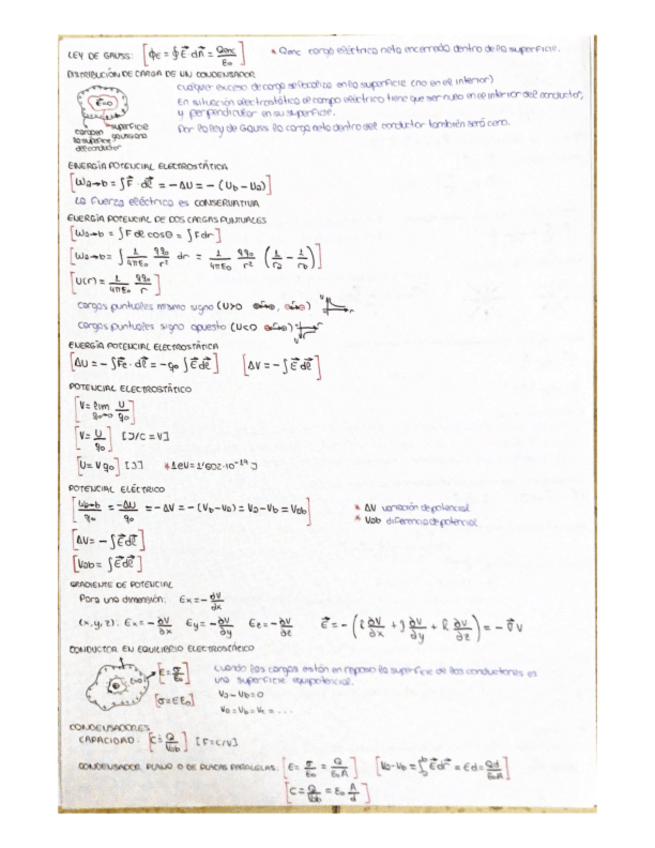 LEY DE GAUSS: [ϕE = ∮E⃗ dA⃗ = Qenc/ε₀] * Qenc carga eléctrica neta encerrada dentro de la superficie.
DISTRIBUCIÓN DE CARGA DE UN CONDENSADOR
cualquier exceso de carga se localiza en la superficie (no en el interior)
En situación electrostática el campo eléctrico tiene que ser nulo en el interior del conductor,
y perpendicular en su superficie.
Por la ley de Gauss la carga neta dentro del conductor también será cero.
E=0
superficie gaussiana
carga en
la superficie
del conductor
ENERGÍA POTENCIAL ELECTROSTÁTICA
[Wa→b = ∫F⃗ · dl⃗ = -ΔU = -(Ub - Ua)]
La fuerza eléctrica es CONSERVATIVA
ENERGÍA POTENCIAL DE DOS CARGAS PUNTUALES
[Wa→b = ∫F dl cosθ = ∫F dr]
[Wa→b = ∫ 1/4πε₀ qq₀/r² dr = 1/4πε₀ qq₀/r² (1/ra - 1/rb)]
[U(r) = 1/4πε₀ qq₀/r]
cargas puntuales mismo signo (U>0
cargas puntuales signo opuesto (U<0
ENERGÍA POTENCIAL ELECTROSTÁTICA
[ΔU = -∫F⃗e · dl⃗ = -q₀ ∫E⃗ dl⃗] [ΔV = -∫E⃗ dl⃗]
POTENCIAL ELECTROSTÁTICO
[V = lim q₀→0 U/q₀]
[V = U/q₀] [J/C = V]
[U = V q₀] [J] *1eV = 1'602·10⁻¹⁹ J
POTENCIAL ELÉCTRICO
[Wa→b/q₀ = -ΔU/q₀ = -ΔV = -(Vb - Va) = Va - Vb = Vab] * ΔV variación de potencial
* Vab diferencia de potencial
[ΔV = -∫E⃗ dl⃗]
[Vab = ∫E⃗ dl⃗]
GRADIENTE DE POTENCIAL
Para una dimensión: Ex = -∂V/∂x
(x,y,z): Ex = -∂V/∂x Ey = -∂V/∂y Ez = -∂V/∂z
CONDUCTOR EN EQUILIBRIO ELECTROSTÁTICO
[E = σ/ε₀] cuando las cargas están en reposo la superficie de los conductores es
una superficie equipotencial.
[σ = E ε₀] Va - Vb = 0
Va = Vb = Vc = ...
CONDENSADORES
CAPACIDAD: [C = Q/Vab] [F = C/V]
CONDENSADOR PLANO O DE PLACAS PARALELAS: [E = σ/ε₀ = Q/ε₀A] [Va - Vb = ∫ₐᵇ E⃗ dr⃗ = Ed = Qd/ε₀A]
[C = Q/Vab = ε₀ A/d]